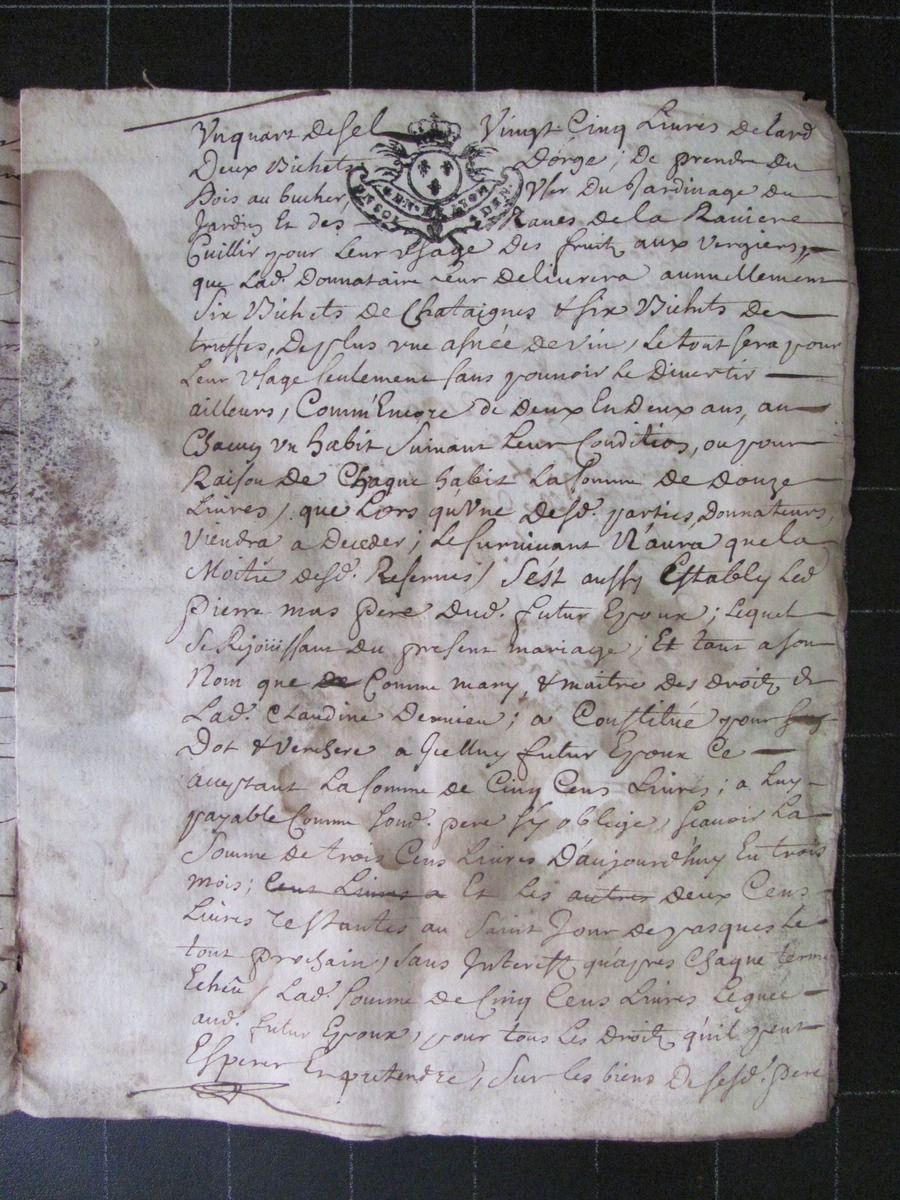 Vnquart desel Vingt Cinq Livres delard
Deux Bichets Dorge; De prendre du
Bois au bucher, Vser Du Jardinage du
GEN. DE LYON
DEN.
Jardin Et des Raues dela Raviere
Cuillir pour Leur Vsage Des fruitz aux vergiers,
que Lad. Donnataire Leur delivrera annuellement
Six Bichets de Chataignes & six Bichets de
truffes, De plus vne asnée de vin, Le tout sera pour
Leur Vsage seulement sans pouuoir Le Divertir
ailleurs, Comm'Encore de Deux En Deux ans, au
Chacun vn habit Suiuant Leur Condition, ou pour
Raison De Chaque habit La somme De Douze
Livres, que Lors qu'Vne Desd. parties, Donnateurs,
Viendra a Deceder; Le suruiuant N'aura quela
Moitié desd. Reserues, S'est aussy Establÿ Led
pierre mas pere Dud. futur Epoux; Lequel
Se Rejouissant Du present mariage; Et tant a son
Nom que Comme mary, & maitre Des Droitz de
Lad. Claudine Dernieu; a Constitué pour
Dot & Verchere a Jcelluy futur Epoux Ce
aceptant La somme de Cinq Cens Livres; a Luy
payable Comme sond. pere s'y oblige, scavoir La
Somme de trois Cens Livres D'aujourd'huy En trois
mois; Cent Livres a Et Les autres deux Cens
Livres restantes au Saint Jour de pasques Le
tout prochain, sans Interest qu'apres Chaque terme
Echeu, Lad. somme de Cinq Cens Livres Leguée
aud. futur Epoux, pour tous Les Droitz qu'il peut
Esperer En pretendre, Sur les biens De sesd. pere